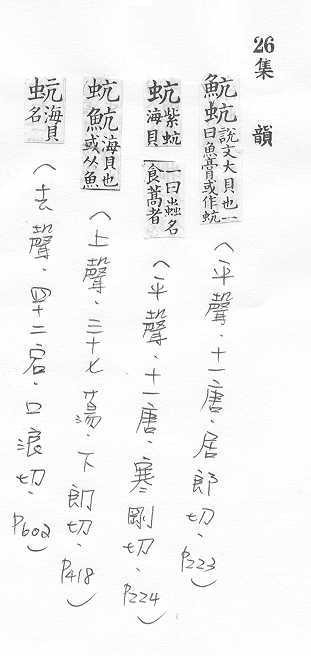 26
集韻
魧蚢說文大貝也一曰魚膏或作蚢（平聲．十一唐．居郎切．P223）
蚢紫蚢海貝一曰蟲名食蒿者（平聲．十一唐．寒剛切．P224）
蚢魧海貝也或从魚（上聲．三十七蕩．下朗切．P418）
蚢海貝名（去聲．四十二宕．口浪切．P602）